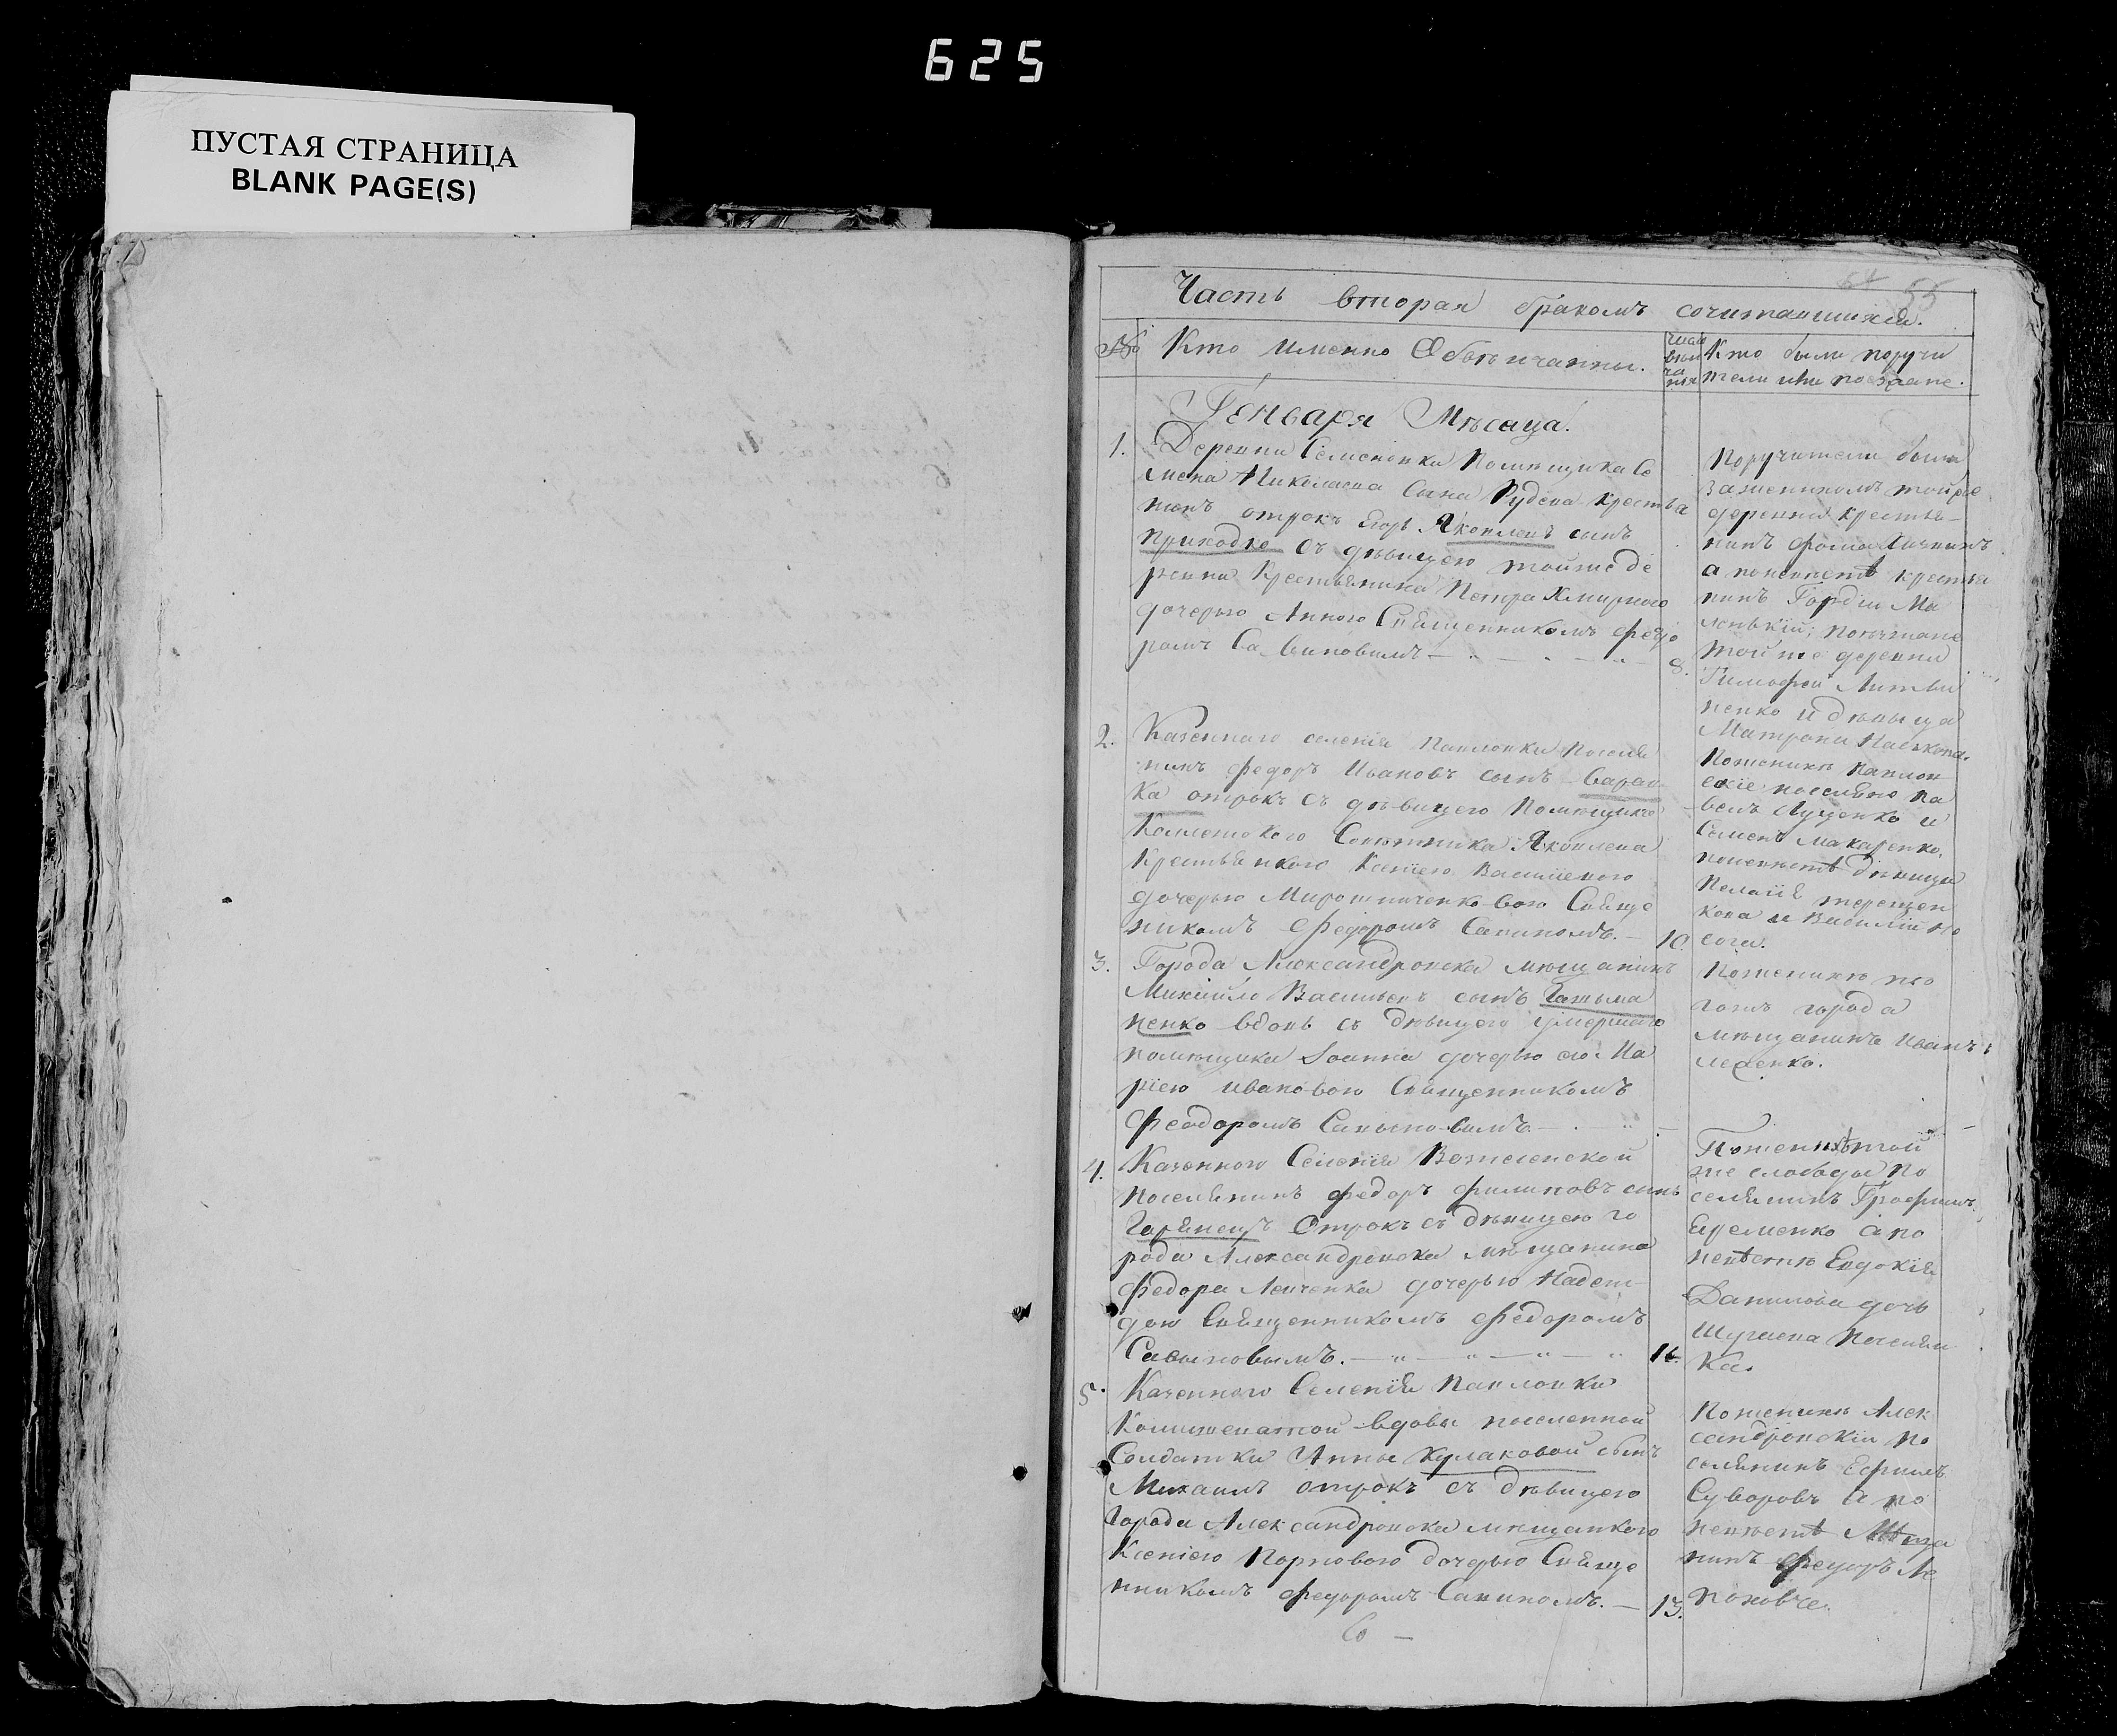 625
ПУСТАЯ СТРАНИЦА
BLANK PAGE(S)
55
Часть вторая бракомъ сочитавшихся.
№ Кто именно Обвѣнчанны.
Кто были поручи
тели или поезжане.
Генваря Мѣсяца.
1. Деревни Семеновки Помѣщика Се
мена Николаева Сына Рудева крестья
нинъ отрокъ Егоръ Яковлевъ сынъ
Приходко Съ дѣвицею тойже де
ревни Крестьянина Петра Хмирного
дочерью Анною Священникомъ Федо
ромъ Савиновымъ 8.
Поручители были
заженихомъ тойже
деревни крестья
нинъ Фома
а поневестѣ крестья
нинъ Гордѣй Ма
ленькій; поезжане
тойже деревни
Тимофей Литви
ненко и дѣвица
Матрона
2. Казенного селенія Павловки Поселя
нинъ Федоръ Ивановъ сынъ Варав
ка отрокъ съ дѣвицею Помѣщика
Сотника Яковлева
Крестьянкою Ксенiею Василiевою
дочерью Мирошниченковою Свяще
никомъ Федоромъ Савиномъ. 10.
Поженихѣ Павлов
скіе поселяне Па
велъ Луценко и
Семенъ Макаренко,
поневестѣ дѣвица
Пелагія Терещен
кова и Василій Но
сога.
3. Города Александровска мѣщанинъ
Михайло Васильевъ сынъ Гетьма
ненко вдовъ съ дѣвицею умершаго
помѣщика Iоанна дочерью его Ма
рiею Ивановою Священникомъ
Феодоромъ Савыновымъ
Поженихѣ то
гожъ города
мѣщанинъ Иванъ
4. Казенного Селенія Вознесенской
поселянинъ Федоръ Филиповъ сынъ
Горянецъ Отрокъ съ дѣвицею го
рода Александровска мѣщанина
Федора Левченка дочерью Надеж
дою Священникомъ Федоромъ
Савыновымъ. 14.
Поженихѣ той
же слободы По
селянинъ Трофимъ
Еременко а по
невѣстѣ Евдокія
Данилова дочь
Шугаева Поселян
ка.
5. Казенного Селенія Павловки
вдовы поселенной
Солдатки Анны Кулаковой сынъ
Михаилъ отрокъ съ дѣвицею
Города Александровска мѣщанкою
Ксенiею дочерью Свяще
нникомъ Федоромъ Савиномъ. 13.
Поженихѣ Алек
сандровскій по
селянинъ Ефимъ
Суворовъ а по
невестѣ Мѣща
нинъ Федоръ